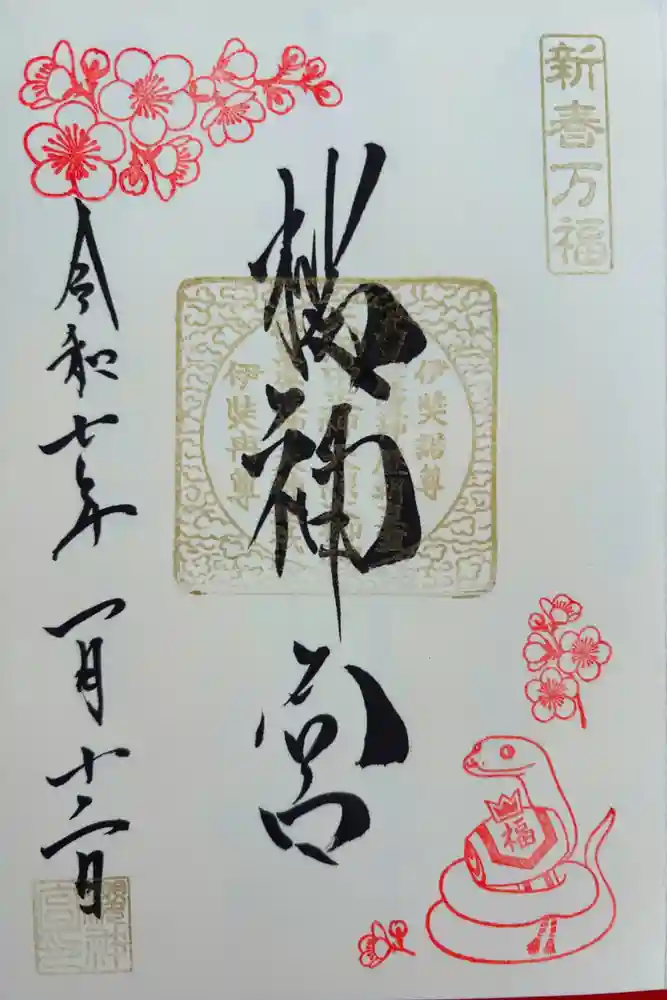 新春万福
櫻神宮
伊奘諾尊
伊奘冉尊
令和七年 一月十二日
福